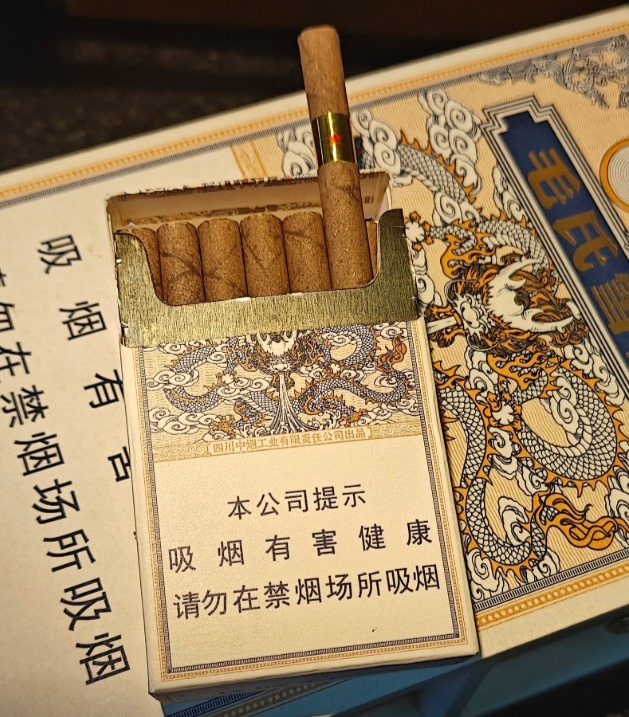 四川中烟工业有限责任公司出品
本公司提示
吸烟有害健康
请勿在禁烟场所吸烟
吸烟有害
勿在禁烟场所吸烟
毛氏雪